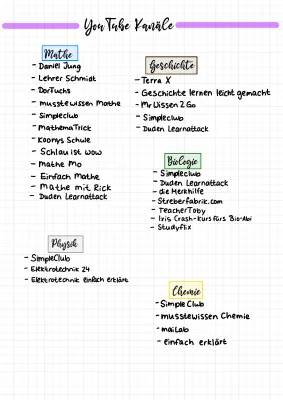 YouTube Kanäle
Mathe
- Daniel Jung
- Lehrer Schmidt
- DorFuchs
- musstewissen Mathe
- Simpleclub
- MathemaTrick
- Koonys Schule
- Schlau ist wow
- Mathe Mo
- Einfach Mathe
- Mathe mit Rick
- Duden Learnattack
Geschichte
- Terra X
- Geschichte lernen leicht gemacht
- MrWissen2Go
- Simpleclub
- Duden Learnattack
Biologie
- Simpleclub
- Duden Learnattack
- die Merkhilfe
- Streberfabrik.com
- TeacherToby
- Iris Crash-Kurs fürs Bio-Abi
- Studyflix
Physik
- SimpleClub
- Elektrotechnik 24
- Elektrotechnik einfach erklärt
Chemie
- SimpleClub
- musstewissen Chemie
- maiLab
- einfach erklärt